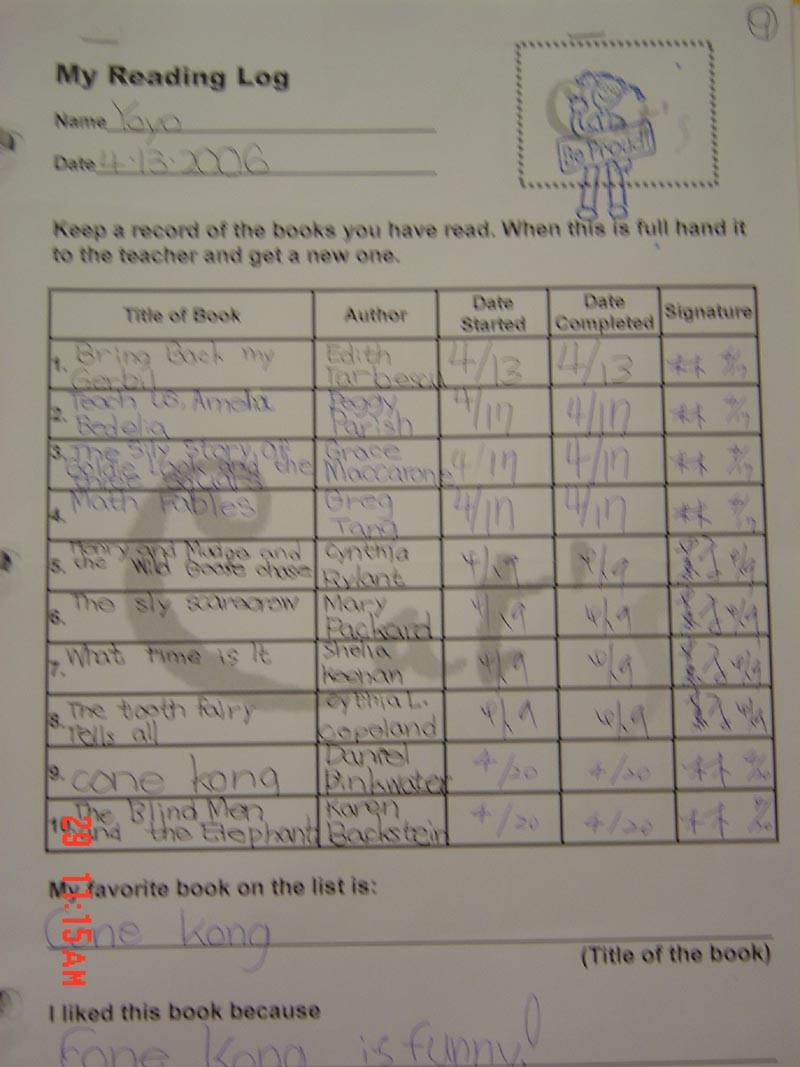 9
My Reading Log
Name Yoyo
Date 4.13.2006
Be Proud!
Keep a record of the books you have read. When this is full hand it
to the teacher and get a new one.
Title of Book Author Date Started Date Completed Signature
1. Bring Back my Edith 4/13 4/13
Gerbil Tarbescu
2. Teach us, Amelia Peggy 4/17 4/17
Bedelia Parish
3. The Sly Story of Grace 4/17 4/17
Goldie Lock and the Maccarone
three squars
4. Math Fables Greg 4/17 4/17
Tang
5. Henry and Mudge and Cynthia 4/19 4/19
the Wild Goose chase Rylant
6. The sly scarecrow Mary 4/19 4/19
Packard
7. What time is It Shelia 4/19 4/19
Keenan
8. The tooth fairy Cythia L. 4/19 4/19
Tells all copeland
9. cone kong Daniel 4/20 4/20
Pinkwater
10. The Blind Men Karen 4/20 4/20
and the Elephant Backstein
My favorite book on the list is:
Cone Kong
(Title of the book)
I liked this book because
Cone Kong is funny!
11:15AM